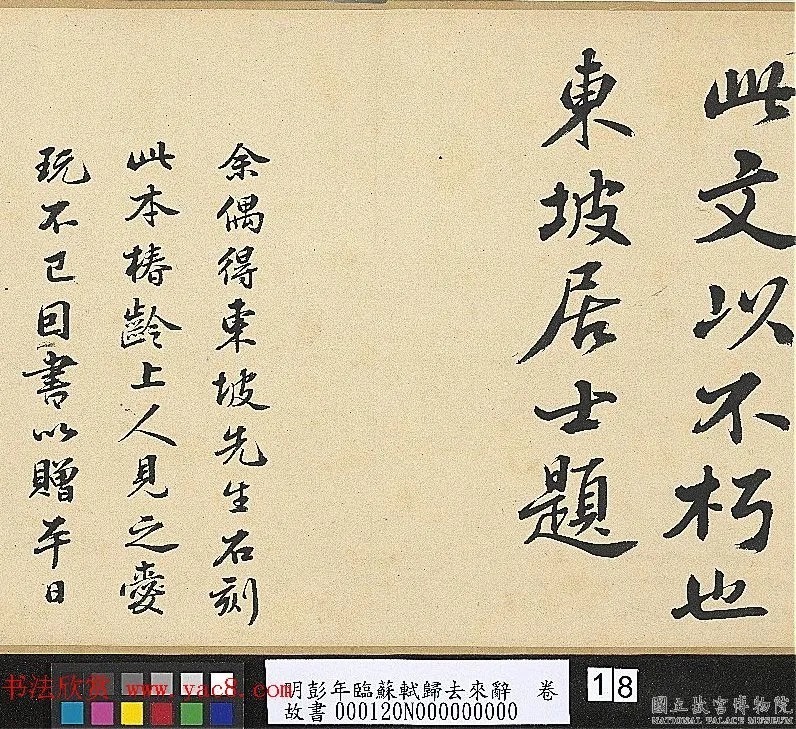 此文以不朽也
東坡居士題
余偶得東坡先生石刻
此本椿齡上人見之愛
玩不已因書以贈平日
书法欣赏 www.yac8.com
明彭年臨蘇軾歸去來辭 卷
故書000120N000000000
18
國立故宮博物院
NATIONAL PALACE MUSEUM